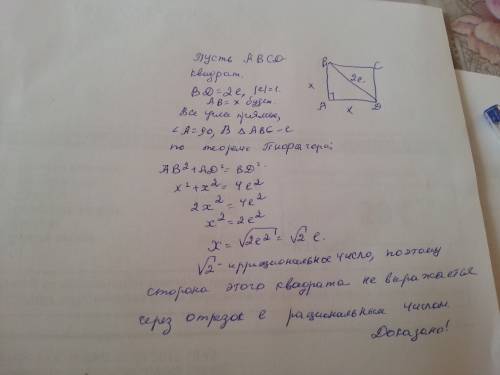 Пусть ABCD
квадрат.
BD=2e, |e|=1.
AB=x будет.
Все углы прямые,
∠A=90, В △ABC-е
по теореме Пифагора:
AB²+AD²=BD²
x²+x²=4e²
2x²=4e²
x²=2e²
x=√2e²=√2 e.
√2-иррациональное число, поэтому
сторона этого квадрата не выражается
через отрезок e рациональным числом.
Доказано!
B C
2e
x
A D
x